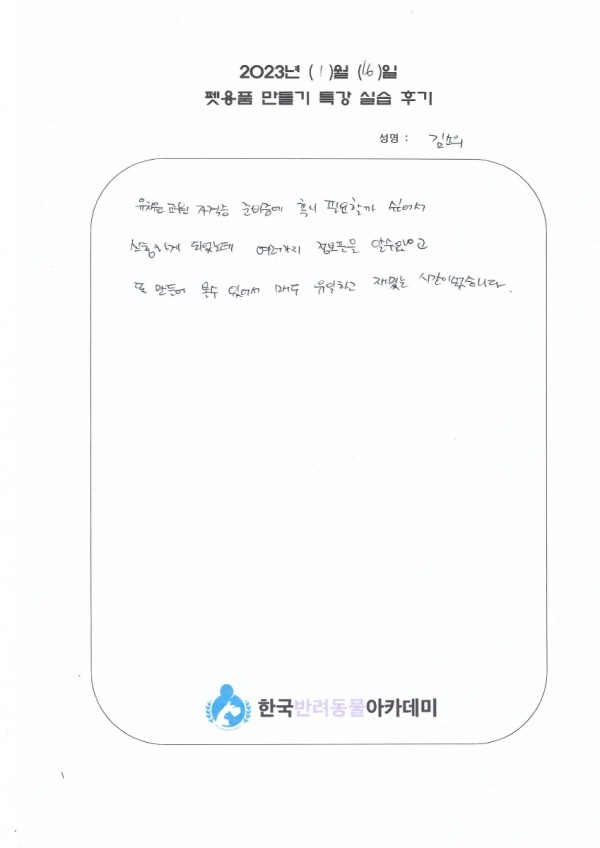 2023년 ( 1 )월 (16)일
펫용품 만들기 특강 실습 후기
성명 : 김소의
유치원 관련 자격증 준비중에 혹시 필요할까 싶어서
신청하게 되었는데 여러가지 정보들을 알수있었고
또 만들어 볼수 있어서 매우 유익하고 재밌는 시간이었습니다.
한국반려동물아카데미